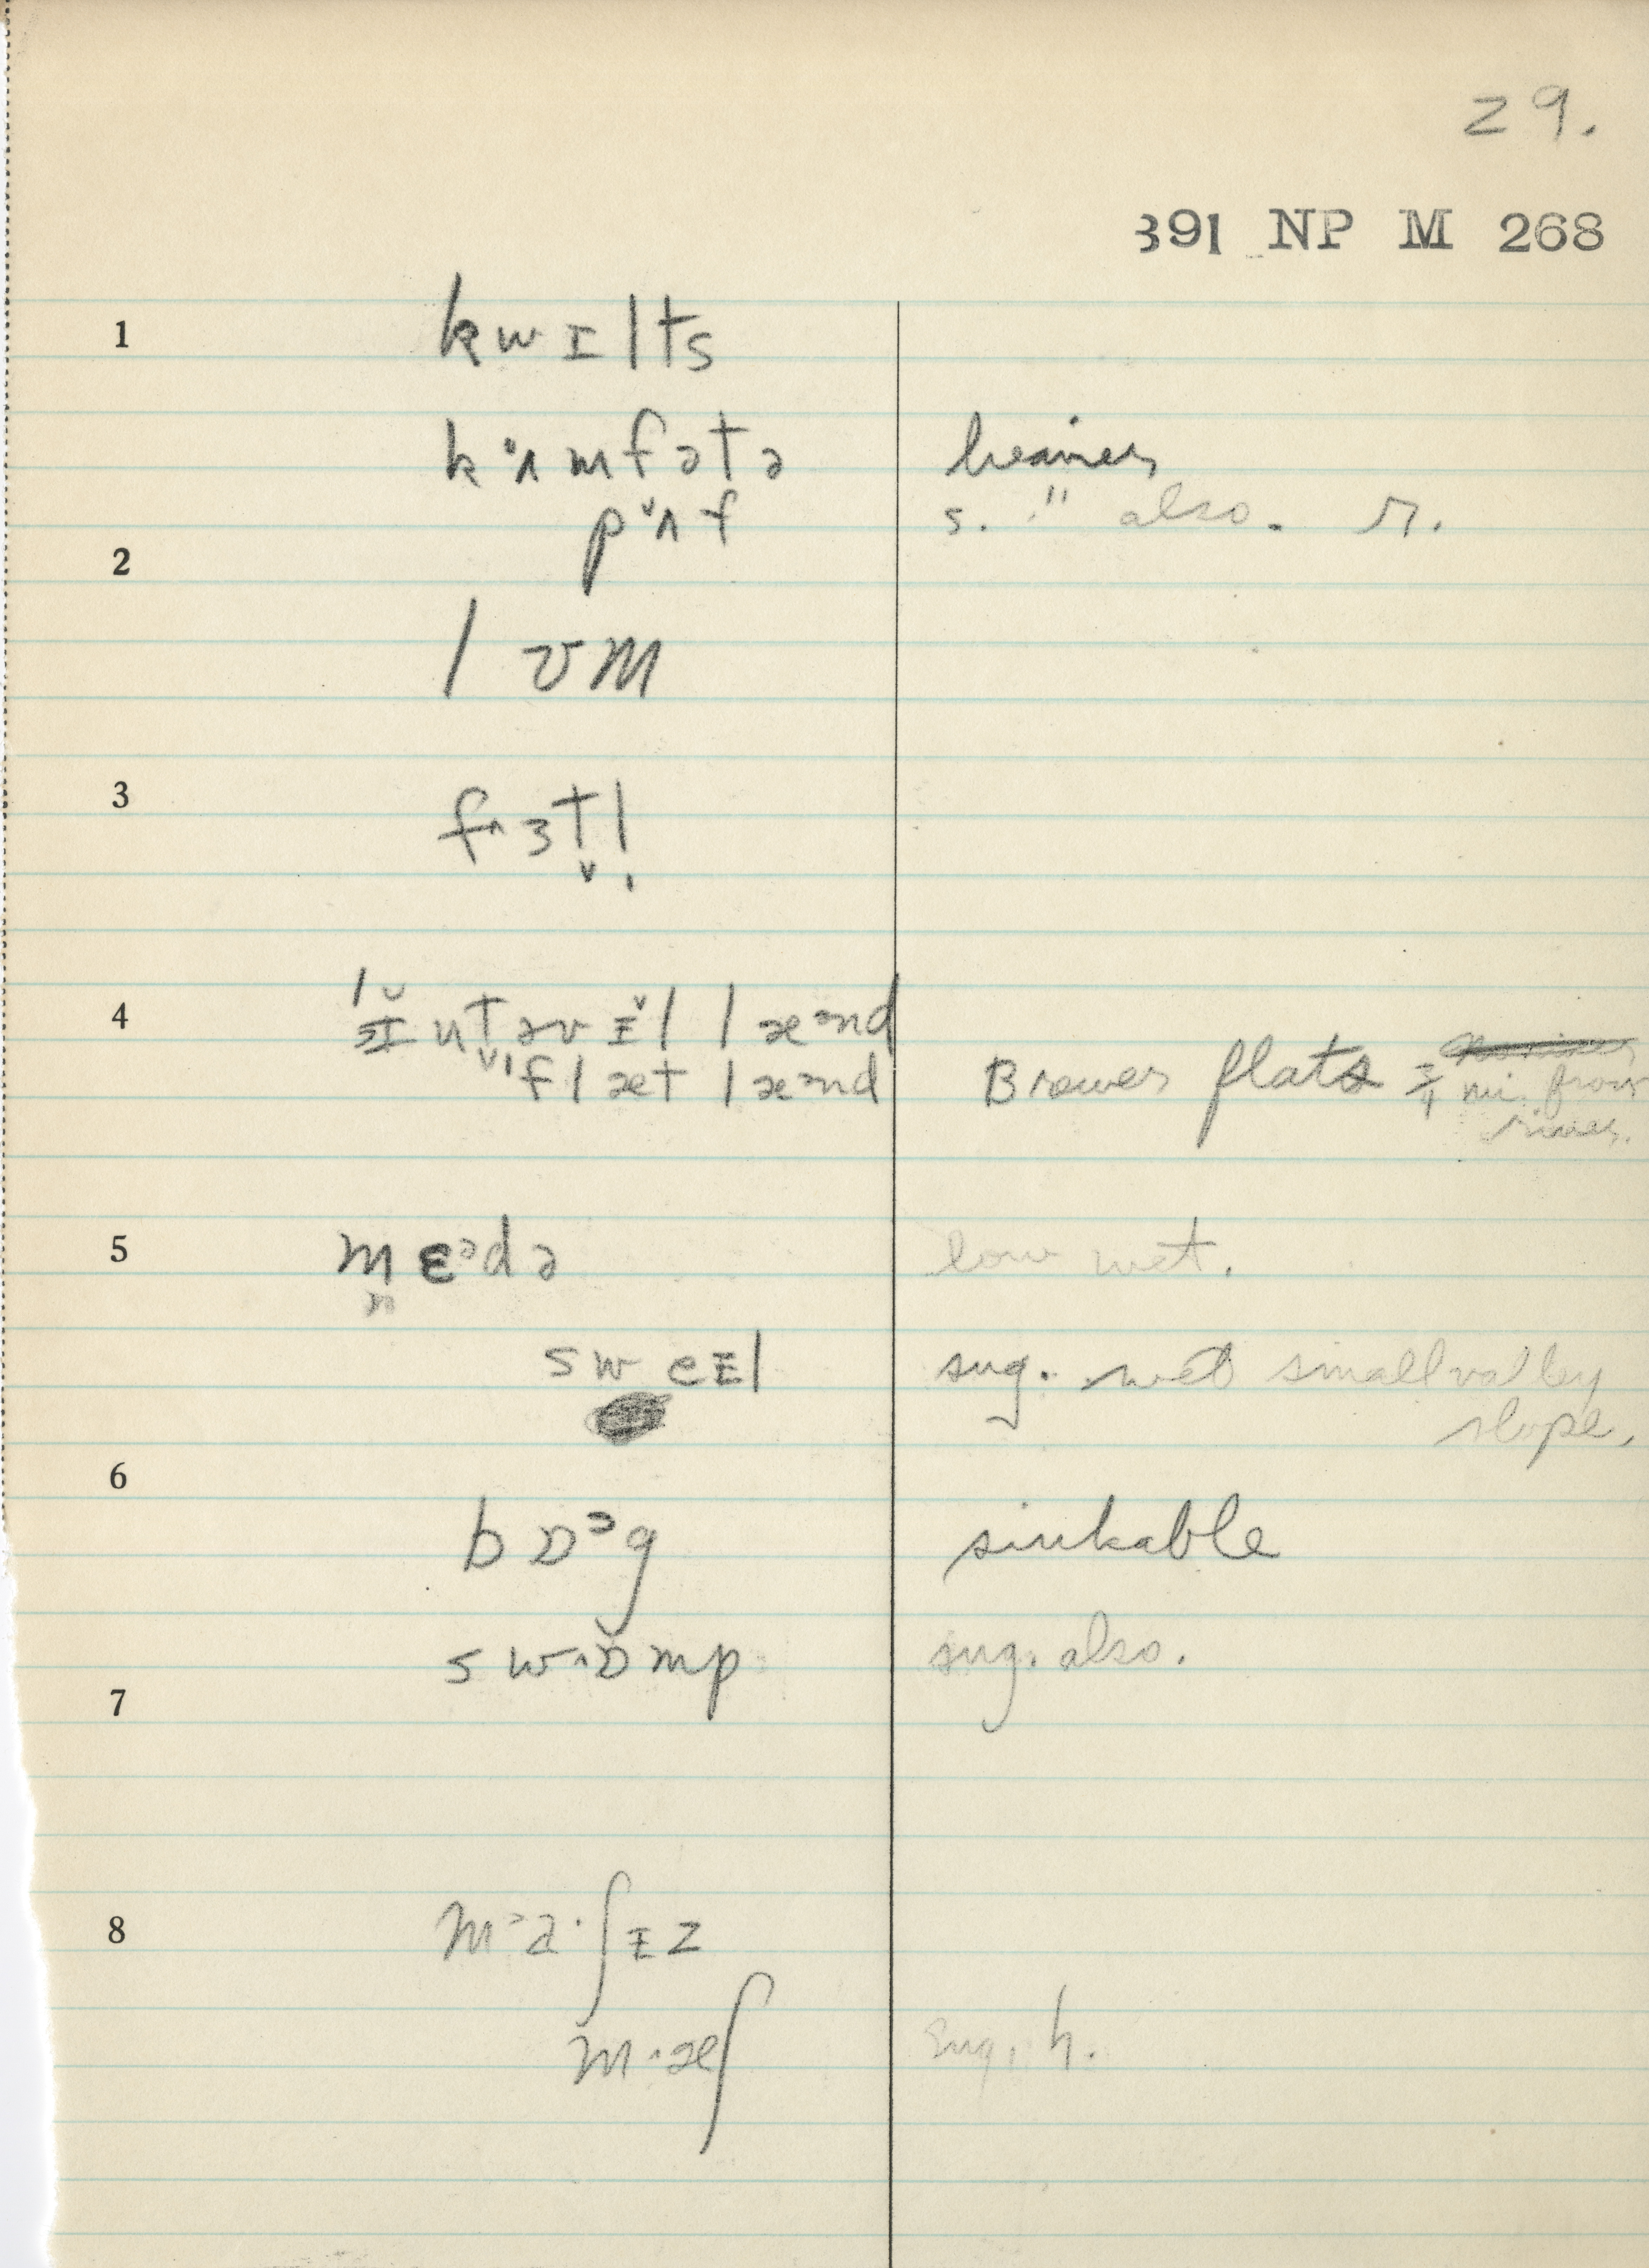 29.
391 NP M 268
1 kwɪlts
kʌmfətə heavier
pʌf s. " also. r.
2
lʊm
3 fɜtl̩
4 ɪntəvɪl læənd
flæt læənd Brewer flats 3/4 mi. from
river.
5 mɛədə low wet.
n
sweɪl sug. wet small valley
slope.
6
bɒɔg sinkable
swɒmp sug. also.
7
8 ma·ʃɪz
mæʃ sug. h.